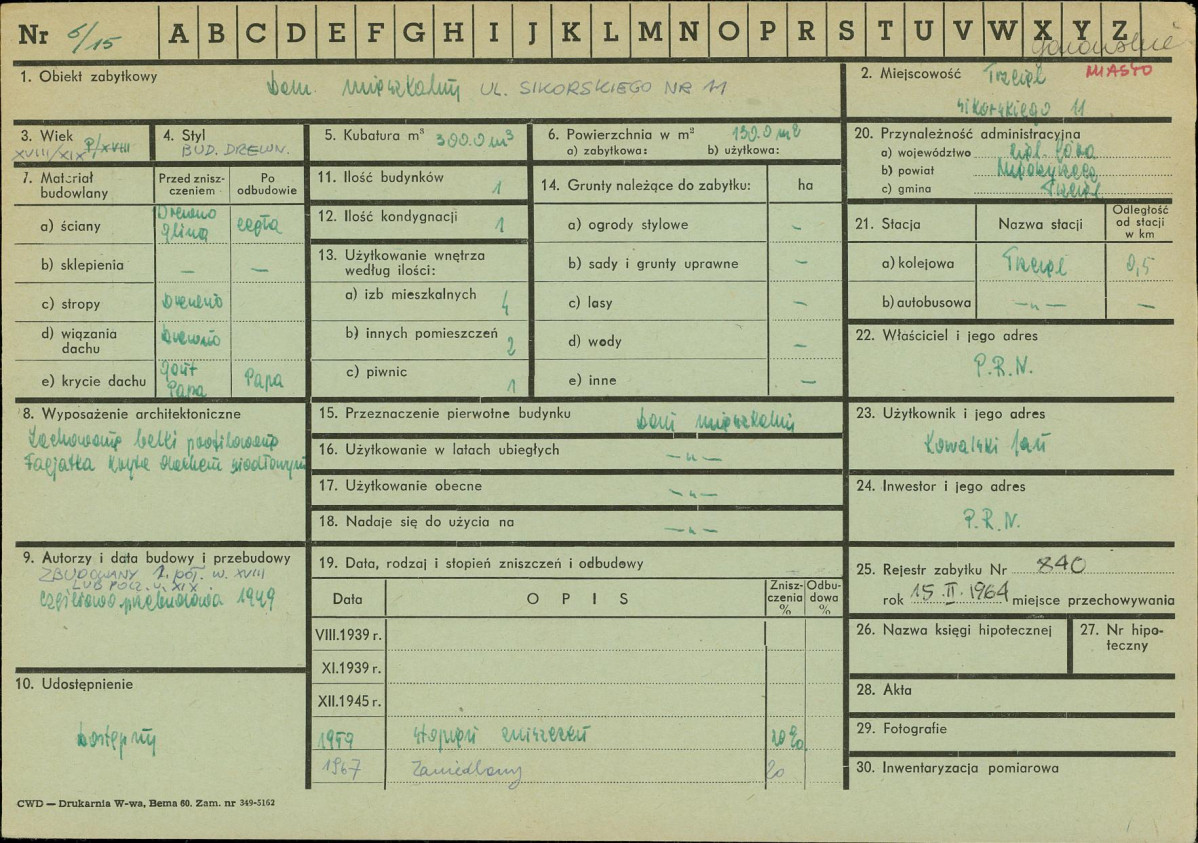 Nr 6/15 A B C D E F G H I J K L M N O P R S T U V W X Y Z
1. Obiekt zabytkowy
Dom mieszkalny UL. SIKORSKIEGO NR 11
2. Miejscowość Trzciel MIASTO
Sikorskiego 11
3. Wiek P/XVIII
XVIII/XIX
4. Styl
BUD. DREWN.
5. Kubatura m³ 390.0 m³
6. Powierzchnia w m² 130.0 m²
a) zabytkowa: b) użytkowa:
20. Przynależność administracyjna
a) województwo Ziel. Góra
b) powiat Międzyrzecz
c) gmina Trzciel
7. Materiał budowlany
Przed zniszczeniem
Po odbudowie
a) ściany Drewno glina cegła
b) sklepienia — —
c) stropy Drewno
d) wiązania dachu Drewno
e) krycie dachu gont Papa Papa
11. Ilość budynków 1
12. Ilość kondygnacji 1
13. Użytkowanie wnętrza według ilości:
a) izb mieszkalnych 4
b) innych pomieszczeń 2
c) piwnic 1
14. Grunty należące do zabytku: ha
a) ogrody stylowe —
b) sady i grunty uprawne —
c) lasy —
d) wody —
e) inne —
21. Stacja Nazwa stacji Odległość od stacji w km
a) kolejowa Trzciel 0,5
b) autobusowa —„— —
22. Właściciel i jego adres
P.R.N.
8. Wyposażenie architektoniczne
Zachowane belki profilowane
Facjatka kryta dachem siodłowym
15. Przeznaczenie pierwotne budynku Dom mieszkalny
16. Użytkowanie w latach ubiegłych —„—
17. Użytkowanie obecne —„—
18. Nadaje się do użycia na —„—
23. Użytkownik i jego adres
Kowalski Jan
24. Inwestor i jego adres
P.R.N.
9. Autorzy i data budowy i przebudowy
ZBUDOWANY 2. POŁ. W. XVIII
LUB POCZ. W. XIX.
częściowo przebudowa 1949
19. Data, rodzaj i stopień zniszczeń i odbudowy
Data OPIS Zniszczenia % Odbudowa %
VIII.1939 r.
XI.1939 r.
XII.1945 r.
1959 stopień zniszczeń 20%
1967 Zaniedbany 20
25. Rejestr zabytku Nr 840
rok 15.II.1964 miejsce przechowywania
26. Nazwa księgi hipotecznej
27. Nr hipoteczny
10. Udostępnienie
Dostępny
28. Akta
29. Fotografie
30. Inwentaryzacja pomiarowa
CWD — Drukarnia W-wa, Bema 60. Zam. nr 349-5162